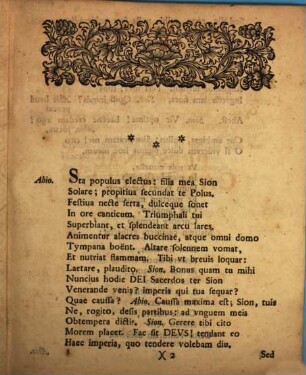 * * *
Abio. Sta populus electus: filia mea Sion
Solare; propitius secundat te Polus.
Festiua necte serta, dulceque sonet
In ore canticum. Triumphali tui
Superbiant, et splendeant arcu lares.
Animentur alacres buccinae, atque omni domo
Tympana boënt. Altare solennem vomat,
Et nutriat flammam. Tibi vt breuis loquar:
Laetare, plaudito. Sion. Bonus quam tu mihi
Nuncius hodie DEI Sacerdos ter Sion
Venerande venis? imperis qui tua sequar?
Quae caussa? Abio. Caussa maxima est; Sion, tuis
Ne, rogito, desis partibus: ad vnguem meis
Obtempera dictis. Sion. Gerere tibi cito
Morem placet. Fac sit DEVS! tendant eo
Haec imperia, quo tendere volebam diu.
X 2 Sed